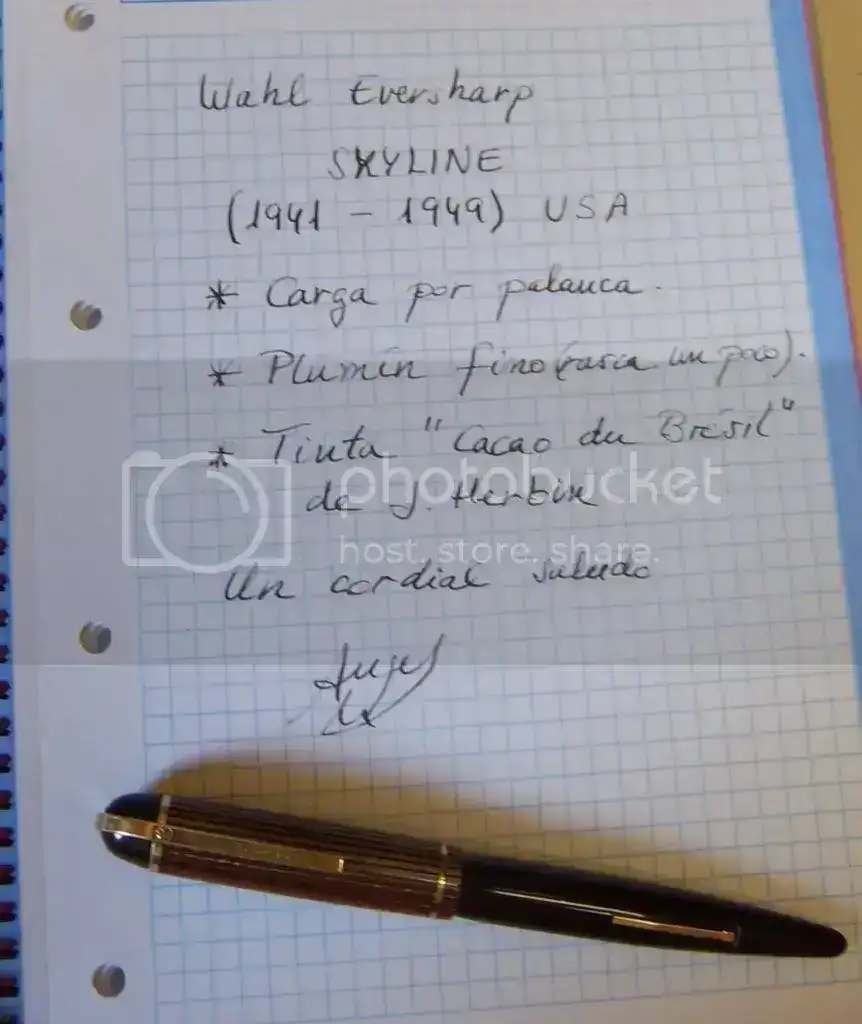 Wahl Eversharp
SKYLINE
(1941 - 1949) USA
* Carga por palanca.
* Plumín fino (rasca un poco).
* Tinta "Cacao du Brésil"
de J. Herbin
Un cordial saludo
photobucket
host. store. share.